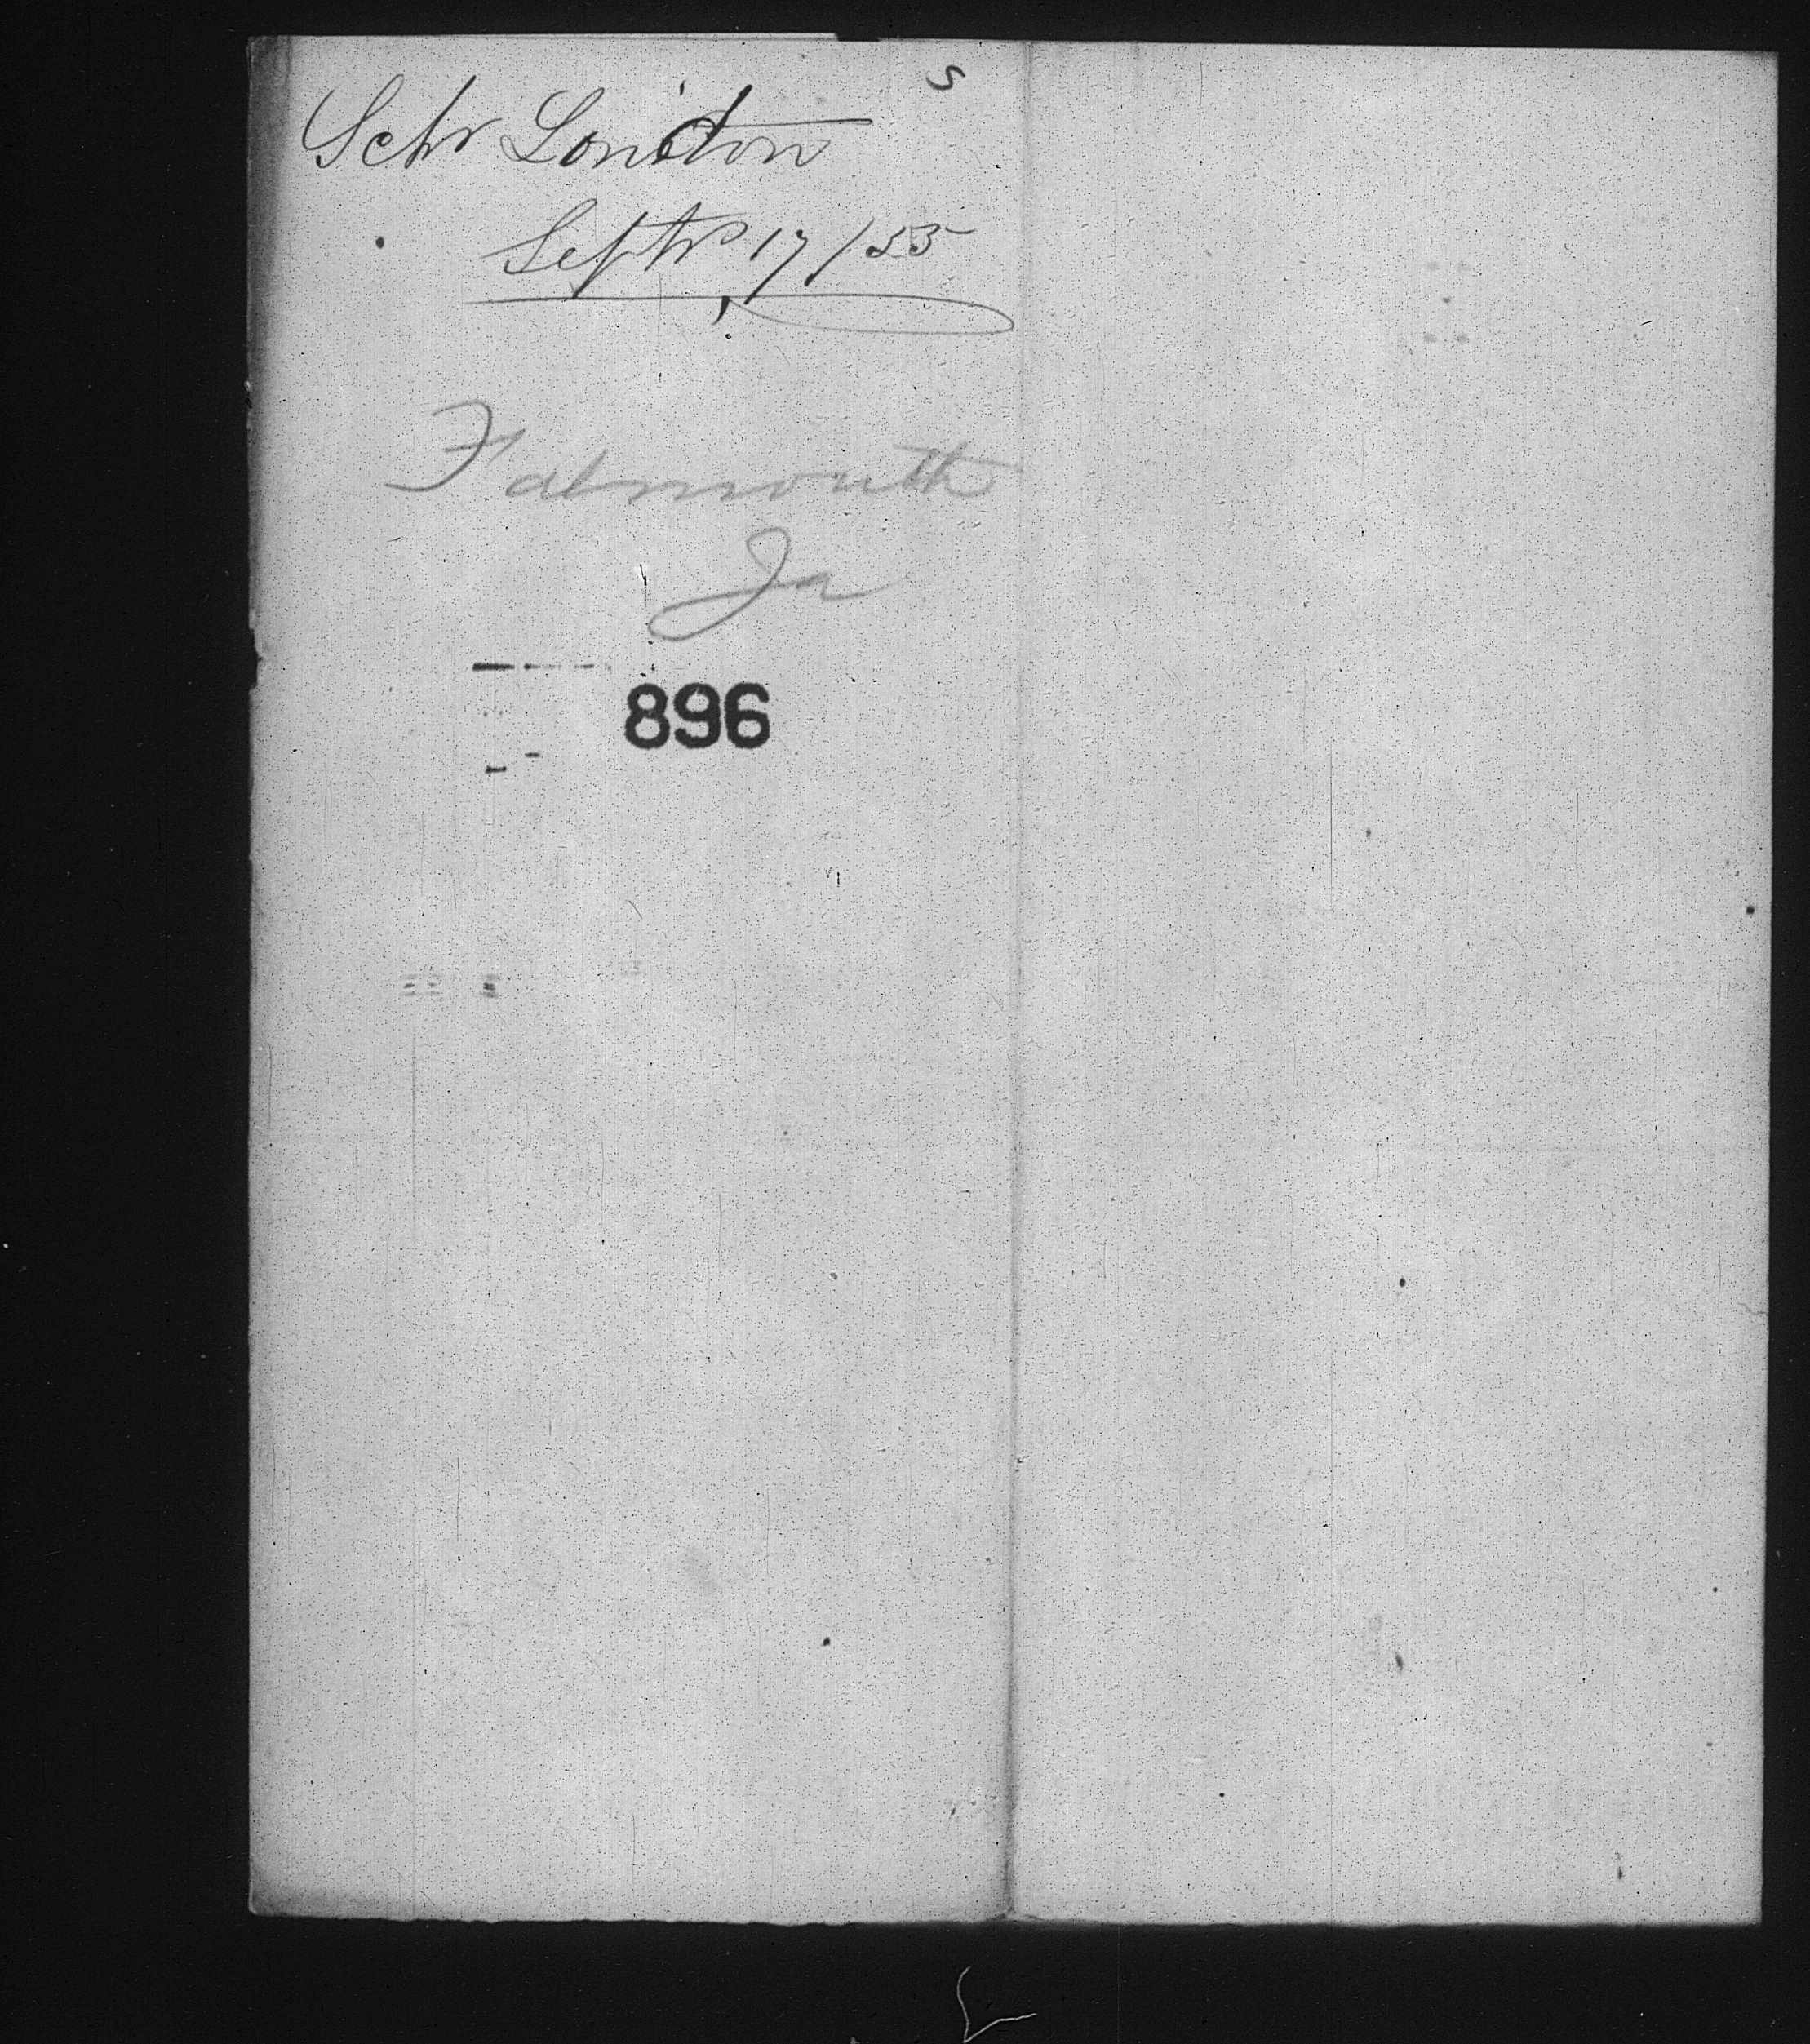 S
Schr London
Septr 17/55
Falmouth
Ja
896